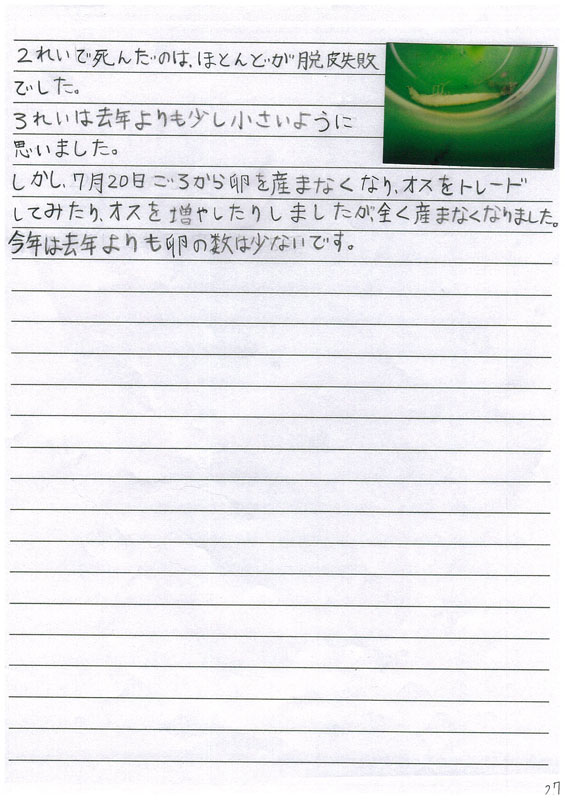 2れいで死んだのは、ほとんどが脱皮失敗
でした。
3れいは去年よりも少し小さいように
思いました。
しかし、7月20日ごろから卵を産まなくなり、オスをトレード
してみたり、オスを増やしたりしましたが、全く産まなくなりました。
今年は去年よりも卵の数は少ないです。
27